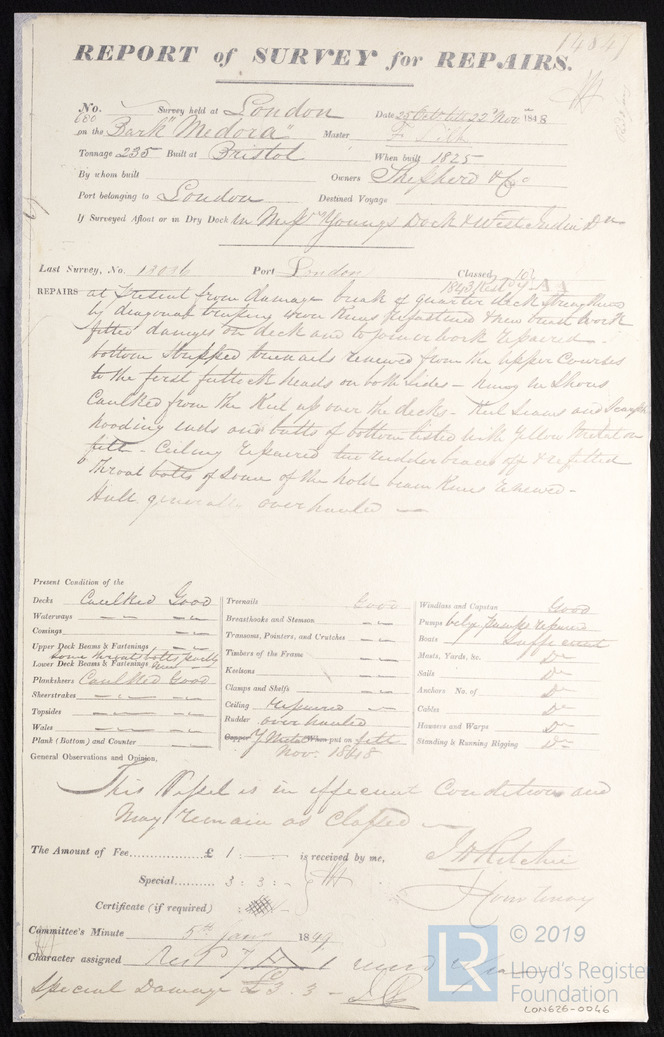 14847
REPORT of SURVEY for REPAIRS.
No. 680 Survey held at London Date 25 Octr till 22d Nov 1848
on the Bark "Medora" Master F. Silk
Tonnage 235 Built at Bristol When built 1825
By whom built Owners Shepherd & Co
Port belonging to London Destined Voyage
If Surveyed Afloat or in Dry Dock in Messrs Youngs Dock & West India Do
Last Survey, No. Port London Classed 10
1843 Rest
REPAIRS at present from damage break of quarter deck strengthened
by diagonal iron knees refastened & new
fitted damages on deck and to joiner work repaired -
bottom stripped treenails renewed from the upper Courses
to the first futtock heads on both sides -
Caulked from the Keel up over the decks - Keel Seams and
hooding ends and butts of bottom listed with Yellow Metal on
felt - Ceiling repaired two rudder braces off & refitted
Throat bolts of some of the hold beam Knees renewed -
Hull generally overhauled
Present Condition of the
Decks Caulked Good
Waterways " "
Comings " "
Upper Deck Beams & Fastenings " "
some throat bolts partly new
Lower Deck Beams & Fastenings
Planksheers Caulked Good
Sheerstrakes " "
Topsides " "
Wales " "
Plank (Bottom) and Counter " "
Treenails Good
Breasthooks and Stemson " "
Transoms, Pointers, and Crutches " "
Timbers of the Frame " "
Keelsons " "
Clamps and Shelfs " "
Ceiling repaired "
Rudder overhauled
Copper Y Metal When put on felt
Nov. 1848
Windlass and Capstan Good
Pumps repaired
Boats Sufficient
Masts, Yards, &c. Do
Sails Do
Anchors No. of Do
Cables Do
Hawsers and Warps Do
Standing & Running Rigging Do
General Observations and Opinion,
This Vessel is in efficient Condition and
May remain as Classed
The Amount of Fee £ 1 : - : - is received by me, J H Ritchie
Special 3 : 3 : - Courtenay
Certificate (if required)
Committee's Minute 5th Jany 1849
Character assigned Rest
Special Damage £3.3 -
LR © 2019
Lloyd's Register
Foundation
LON626-0046